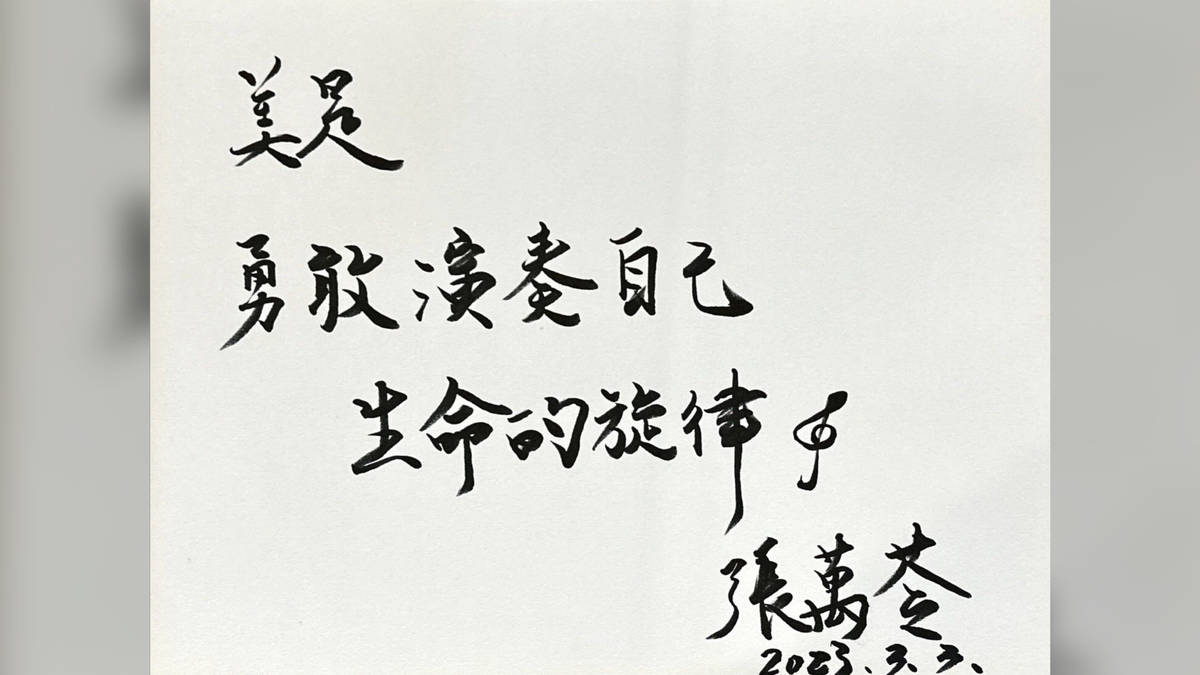 美足
勇敢演奏自己
生命的旋律
張萬苓
2023.3.3.